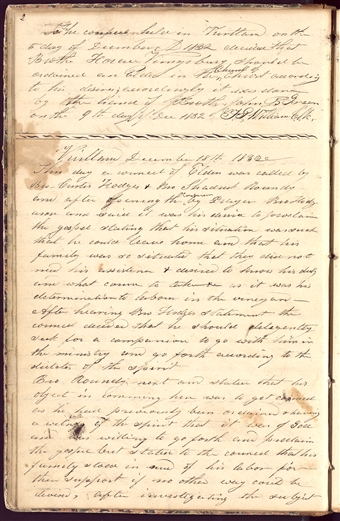 2
At the conference held in Kirtland on the
6 day of December AD 1832 decided that
Broth Horace Kingsbury should be
ordained an Elder in the Church of Christ according
to his desire accordingly it was done
by the hands of Broth John
on the 9th day of Dec 1832 F G Williams Clk
Kirtland December 18th 1832
This day a council of Elders was called by
Bro. Curtis Hodges & Bro Shadrach Roundy
and after opening the by Prayer Bro Hodges
arose and said it was his desire to proclaim
the gospel stating that his situation was such
that he could leave home and that his
family was so situated that they did not
need his assistance & desired to know his duty
and what course to take as it was his
determination to labour in the vineyard
After hearing Bro Hodges statement the
council decided that he should diligently
seek for a companion to go with him in
the ministry and go forth according to the
dictates of the spirit
Bro. Roundy next and stated that his
object in comming here was to get
as he had previously been ordained &
a witness of the spirit that it was of God
and was willing to go forth and proclaim
the gospel but stated to the council that his
family stood in need of his labor for
their support if no other way could be
devised, after investigating the subject